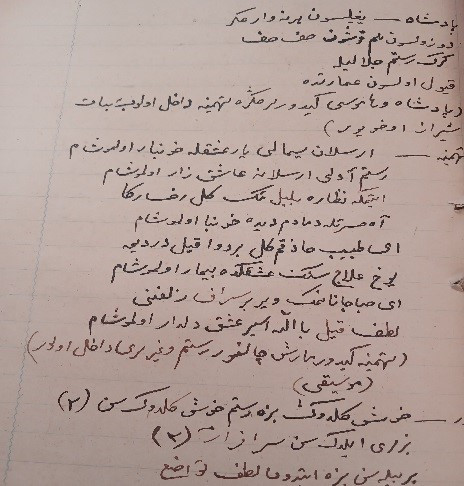 پادشاه — یغیلسون برنه وار حکر
دوزولسون هم قوشون صف صف
گرک رستم جلالیله
قبول اولسون عمارتده
(پادشاه و هامیسی گیدورلر تهمینه داخل اولوب بیات
شیراز اوخویور)
تهمینه — ارسلان سیمالی یار عشقله خونبار اولموشام
رستم آدلی ارسلانه عاشق زار اولموشام
ایتمگه نظاره بلبل تک گل رخسارکا
آه حسرتله دمادم دیده خونبا اولموشام
ای طبیب حاذقم گل بردوا قیل دردیمه
یوخ علاجی سنک عشقکده بیمار اولموشام
ای صبا جانانمک ویر بر سراف زلفنی
لطف قیل باالله اسیر عشق دلدار اولموشام
(تهمینه گیدور مارش چالنور رستم و غیرلری داخل اولور)
(موسیقی)
خوش گلدوک بزه رستم خوش گلدوک سن (۲)
بزلری ایلدک سن سرافراز (۲)
بربیله سن بزه ایتدوک لطف تواضع